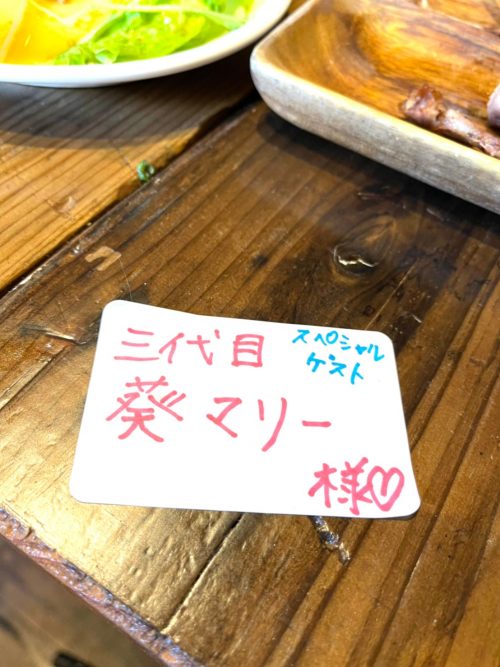 三代目
スペシャル
ゲスト
葵マリー
様♡